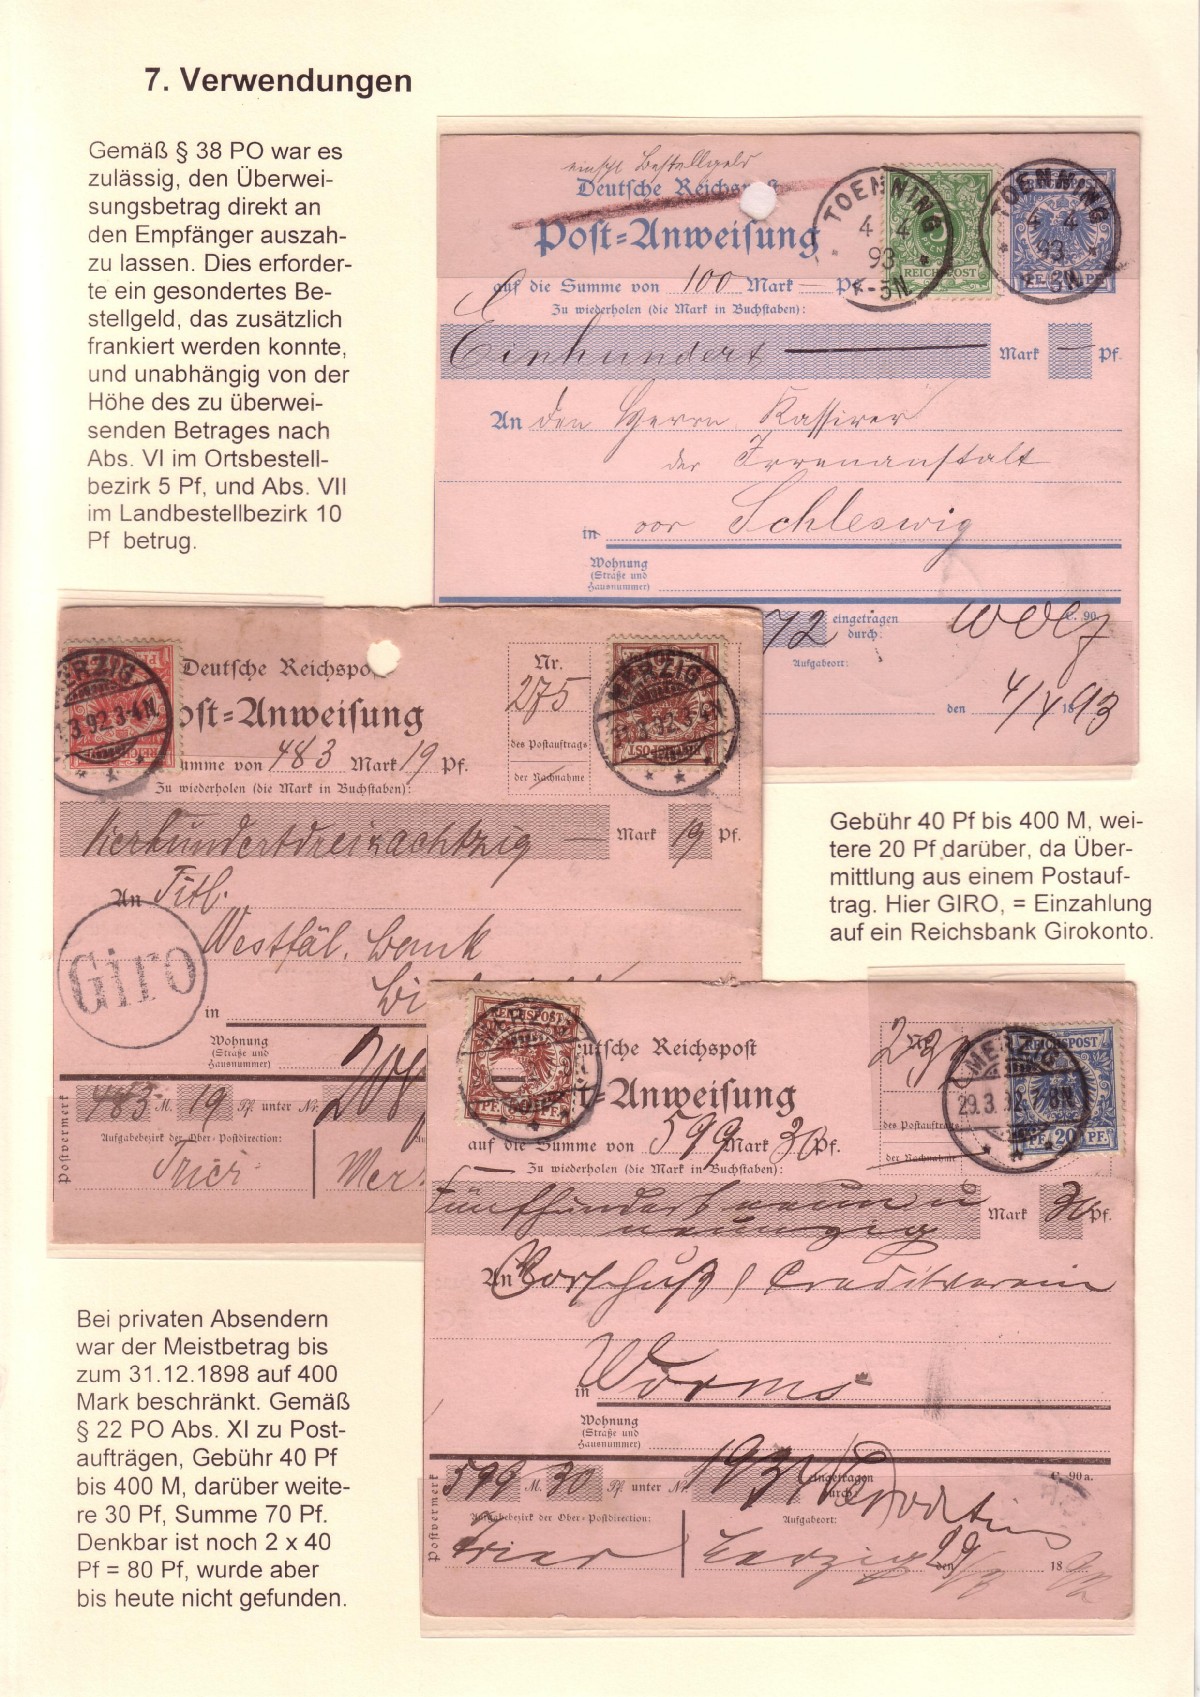 7. Verwendungen
Gemäß § 38 PO war es
zulässig, den Überwei-
sungsbetrag direkt an
den Empfänger auszah-
zu lassen. Dies erforder-
te ein gesondertes Be-
stellgeld, das zusätzlich
frankiert werden konnte,
und unabhängig von der
Höhe des zu überwei-
senden Betrages nach
Abs. VI im Ortsbestell-
bezirk 5 Pf, und Abs. VII
im Landbestellbezirk 10
Pf betrug.
einschl Bestellgeld
Deutsche Reichspost
Post=Anweisung
TOENNING
4 4
93
REICHSPOST
TOENNING
4 4
93
auf die Summe von 100 Mark — Pf.
Zu wiederholen (die Mark in Buchstaben):
Einhundert — Mark — Pf.
An den Herrn Kassirer
der Irrenanstalt
in vor Schleswig
Wohnung
(Straße und
Hausnummer)
72 eingetragen
durch:
C. 90.
Aufgabeort:
den 4/4 1893
Deutsche Reichspost
Post=Anweisung
MERZIG
3.92.3-4N.
Nr.
275
des Postauftrags
der Nachnahme
MERZIG
3.92.3-4N.
Summe von 483 Mark 19 Pf.
Zu wiederholen (die Mark in Buchstaben):
Vierhundertdreiachtzig — Mark 19 Pf.
An Titl.
Westfäl. Bank
Giro
in
Wohnung
(Straße und
Hausnummer)
Postvermerk
483 M. 19 Pf. unter Nr.
Aufgabebezirk der Ober-Postdirection:
Trier
Mer
Gebühr 40 Pf bis 400 M, wei-
tere 20 Pf darüber, da Über-
mittlung aus einem Postauf-
trag. Hier GIRO, = Einzahlung
auf ein Reichsbank Girokonto.
REICHSPOST
50 PF.
Deutsche Reichspost
Post-Anweisung
Nr.
des Postauftrags
der Nachnahme
MERZIG
29.3.92.
REICHSPOST
PF. 20 PF.
auf die Summe von 599 Mark 30 Pf.
Zu wiederholen (die Mark in Buchstaben):
Fünfhundert neun u
neunzig Mark 30 Pf.
An Vorschuß / Creditverein
in Worms
Wohnung
(Straße und
Hausnummer)
Postvermerk
599 M. 30 Pf. unter Nr. eingetragen
durch:
C. 90a.
Aufgabebezirk der Ober-Postdirection:
Aufgabeort:
Trier Merzig den 29/3 18
Bei privaten Absendern
war der Meistbetrag bis
zum 31.12.1898 auf 400
Mark beschränkt. Gemäß
§ 22 PO Abs. XI zu Post-
aufträgen, Gebühr 40 Pf
bis 400 M, darüber weite-
re 30 Pf, Summe 70 Pf.
Denkbar ist noch 2 x 40
Pf = 80 Pf, wurde aber
bis heute nicht gefunden.